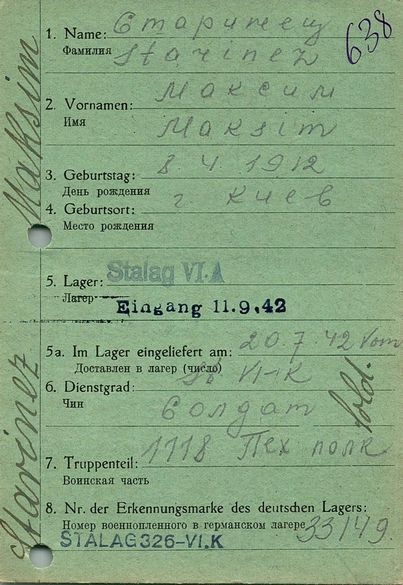 638
1. Name: Старинец
Фамилия Starinez
2. Vornamen: Максим
Имя Maksim
3. Geburtstag: 8 4 1912
День рождения
г Киев
4. Geburtsort:
Место рождения
5. Lager: Stalag VI.A
Лагер
Eingang 11.9.42
5a. Im Lager eingeliefert am: 20.7.42 Vom
Доставлен в лагер (число) VI-K
6. Dienstgrad:
Чин Солдат
Sold.
7. Truppenteil: 1118 Пех полк
Воинская часть
8. Nr. der Erkennungsmarke des deutschen Lagers:
Номер военнопленного в германском лагере 33149
STALAG 326-VI.K
Starinez Maksim